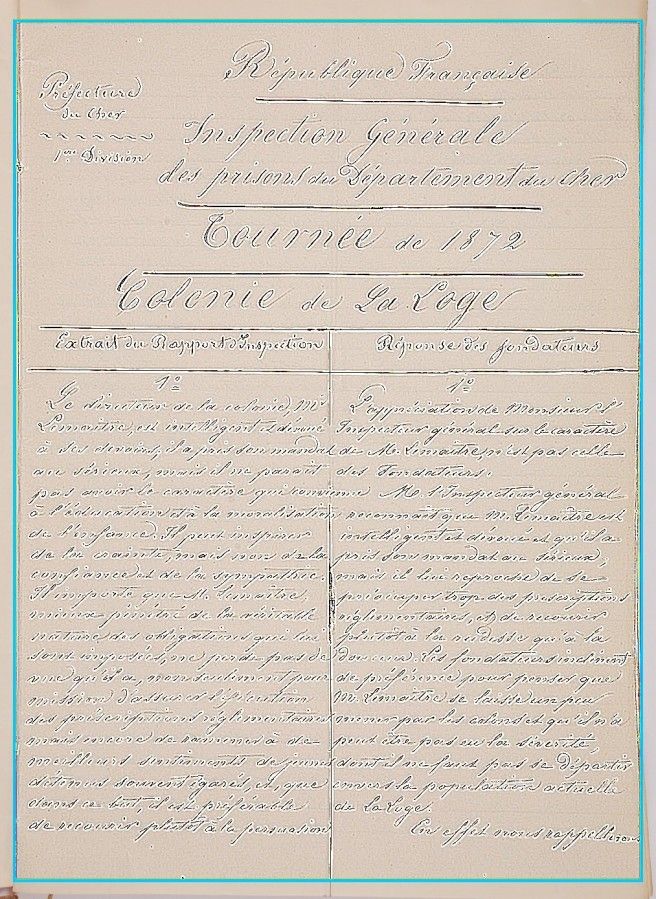 République Française
Préfecture
du Cher
1ère Division
Inspection Générale
des prisons du Département du Cher
Tournée de 1872
Colonie de La Loge
Extrait du Rapport d'Inspection
1°
Le directeur de la colonie, Mr
Lemaitre, est intelligent et dévoué
à ses devoirs, il a pris son mandat
au sérieux, mais il ne parait
pas avoir le caractère qui convienne
à l'éducation et à la moralisation
de l'enfance. Il peut inspirer
de la crainte, mais non de la
confiance et de la sympathie.
Il importe que M. Lemaitre,
mieux pénétré de la véritable
nature des obligations qui lui
sont imposées, ne perde pas de
vue qu'il a, non seulement pour
mission d'assurer l'exécution
des prescriptions réglementaires
mais encore de ramener à de
meilleurs sentiments de jeunes
détenus souvent égarés, et, que
dans ce but, il est préférable
de recourir plutôt à la persuasion
Réponse des fondateurs
1°
L'appréciation de Monsieur l'
Inspecteur général sur le caractère
de M. Lemaitre n'est pas celle
des Fondateurs.
M. l'Inspecteur général
reconnait que M. Lemaitre est
intelligent et dévoué et qu'il a
pris son mandat au sérieux,
mais il lui reproche de se
préoccuper trop des prescriptions
réglementaires, et de recourir
plutôt à la rudesse qu'à la
douceur. Les fondateurs inclinent
de préférence pour penser que
M. Lemaitre se laisse un peu
mener par les colons et qu'il n'a
peut être pas eu la sévérité,
dont il ne faut pas se départir
envers la population actuelle
de La Loge.
En effet nous rappellerons